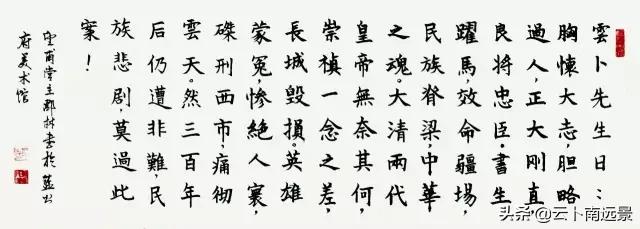 雲卜先生曰：
胸懷大志，胆略
過人，正大剛直
良將忠臣。書生
躍馬，效命疆場，
民族脊梁，中華
之魂。大清兩代
皇帝無奈其何，
崇禎一念之差，
長城毀損。英雄
蒙冤，慘絕人寰，
磔刑西市，痛彻
雲天。然三百年
后仍遭非難，民
族悲剧，莫過此
案！
堂主 書於
府美术馆
头条 @云卜南远景